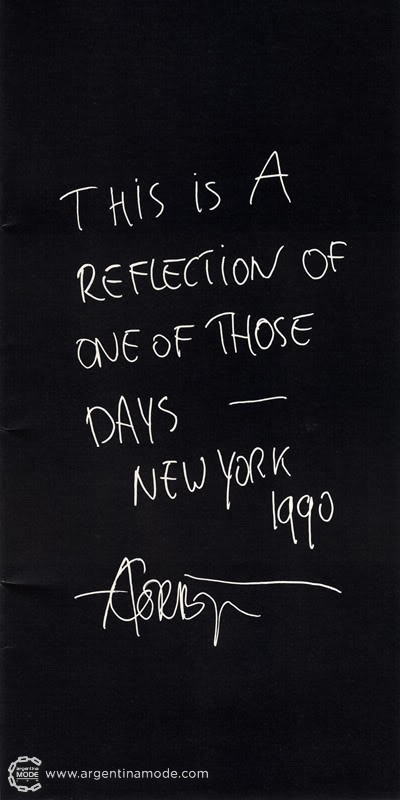 THIS IS A
REFLECTION OF
ONE OF THOSE
DAYS —
NEW YORK
1990
argentina
MODE
www.argentinamode.com